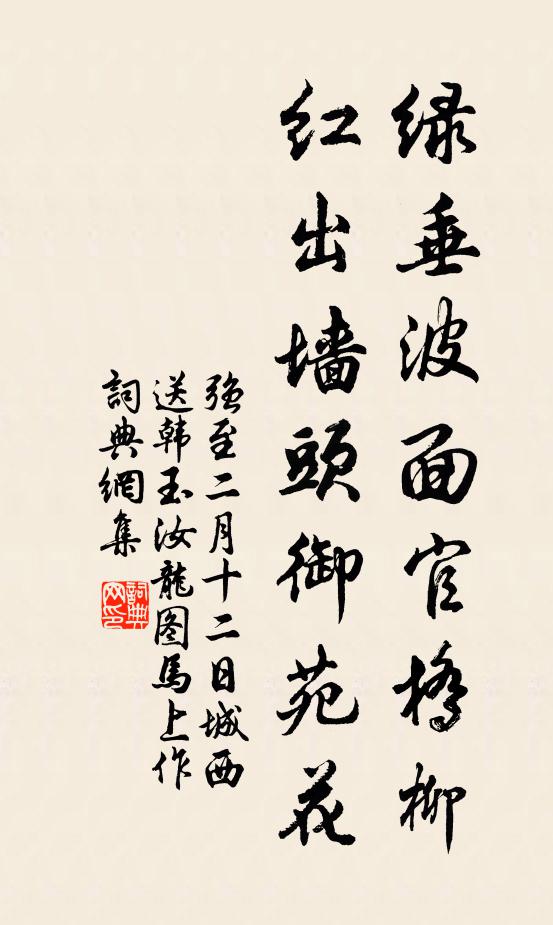 绿垂波面官橋柳
红出墙頭御苑花
强至二月十二日城西
送韩玉汝龍图馬上作
詞典網集
詞典网印